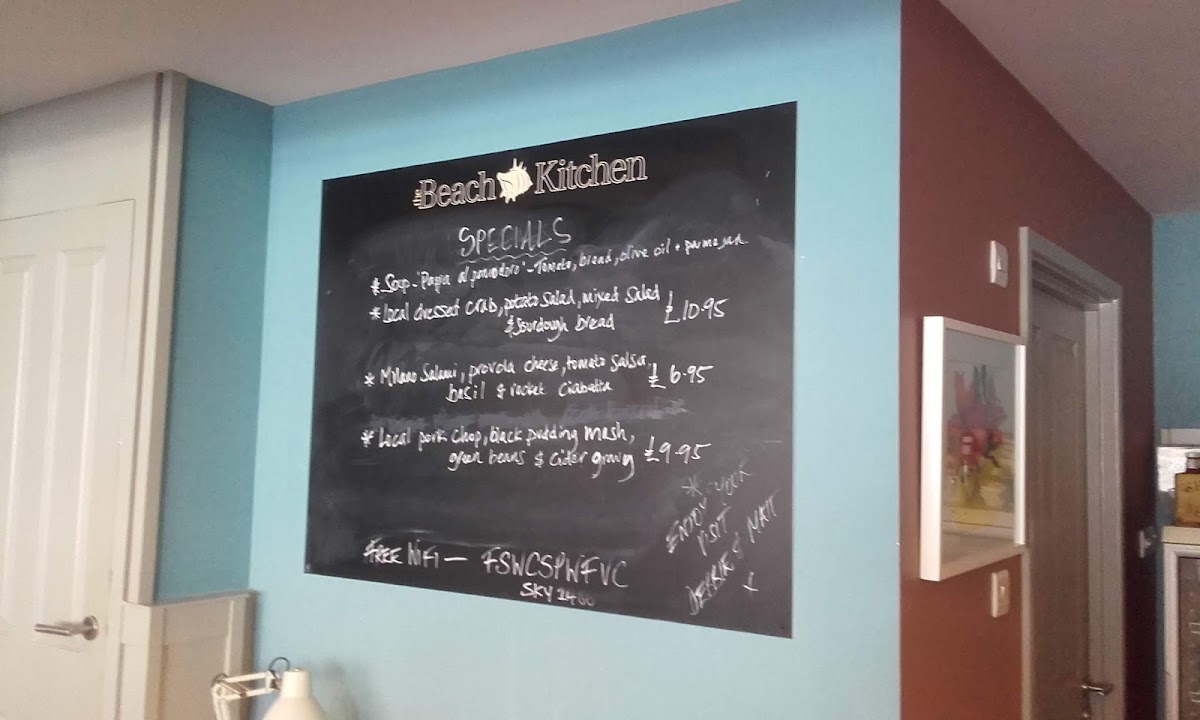 the Beach Kitchen
SPECIALS
* Soup - 'Pappa al pomodoro' - Tomato, bread, olive oil + parmesan
* Local dressed crab, potato salad, mixed salad
& Sourdough bread £10.95
* Milano Salami, provola cheese, tomato salsa,
basil & rocket Ciabatta £6.95
* Local pork chop, black pudding mash,
green beans & Cider gravy £9.95
* ENJOY YOUR
VISIT
DEBBIE & MATT
FREE WIFI — FSWCSPWFVC